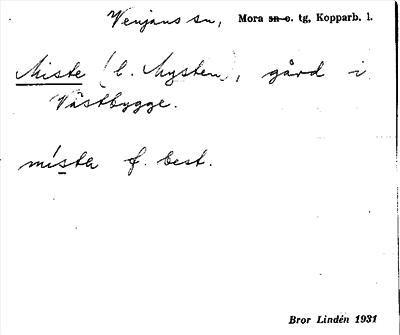 Venjans sn, Mora sn o. tg, Kopparb. l.
Miste (l. Mysten), gård i
Västbygge.
mista f. best.
Bror Lindén 1931